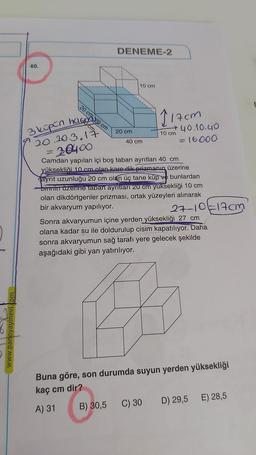 DENEME-2
40.
10 cm
20 cm
20 cm
10 cm
40 cm
17cm
40.10.40
= 16000
3 küpün hacmi
20.20.3.17
= 20400
Camdan yapılan içi boş taban ayrıtları 40 cm
yüksekliği 10 cm olan kare dik prizmanın üzerine
ayrıt uzunluğu 20 cm olan üç tane küp ve bunlardan
birinin üzerine taban ayrıtları 20 cm yüksekliği 10 cm
olan dikdörtgenler prizması, ortak yüzeyleri alınarak
bir akvaryum yapılıyor.
27-10=17cm
Sonra akvaryumun içine yerden yüksekliği 27 cm
olana kadar su ile doldurulup cisim kapatılıyor. Daha
sonra akvaryumun sağ tarafı yere gelecek şekilde
aşağıdaki gibi yan yatırılıyor.
Buna göre, son durumda suyun yerden yüksekliği
kaç cm dir?
A) 31 B) 30,5 C) 30 D) 29,5 E) 28,5